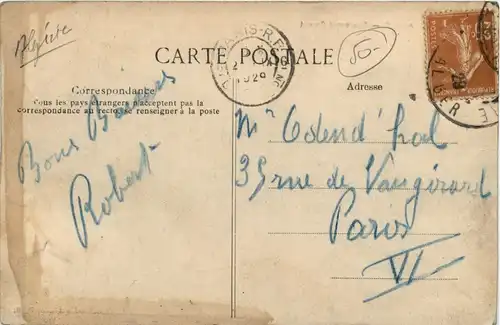 Algérie
CARTE POSTALE
50-
Correspondance
Tous les pays étrangers n'acceptent pas la
correspondance au recto, se renseigner à la poste
Adresse
Bons Baisers
Robert
Mr Odend'hal
35 rue de Vaugirard
Paris
VI
ALGER